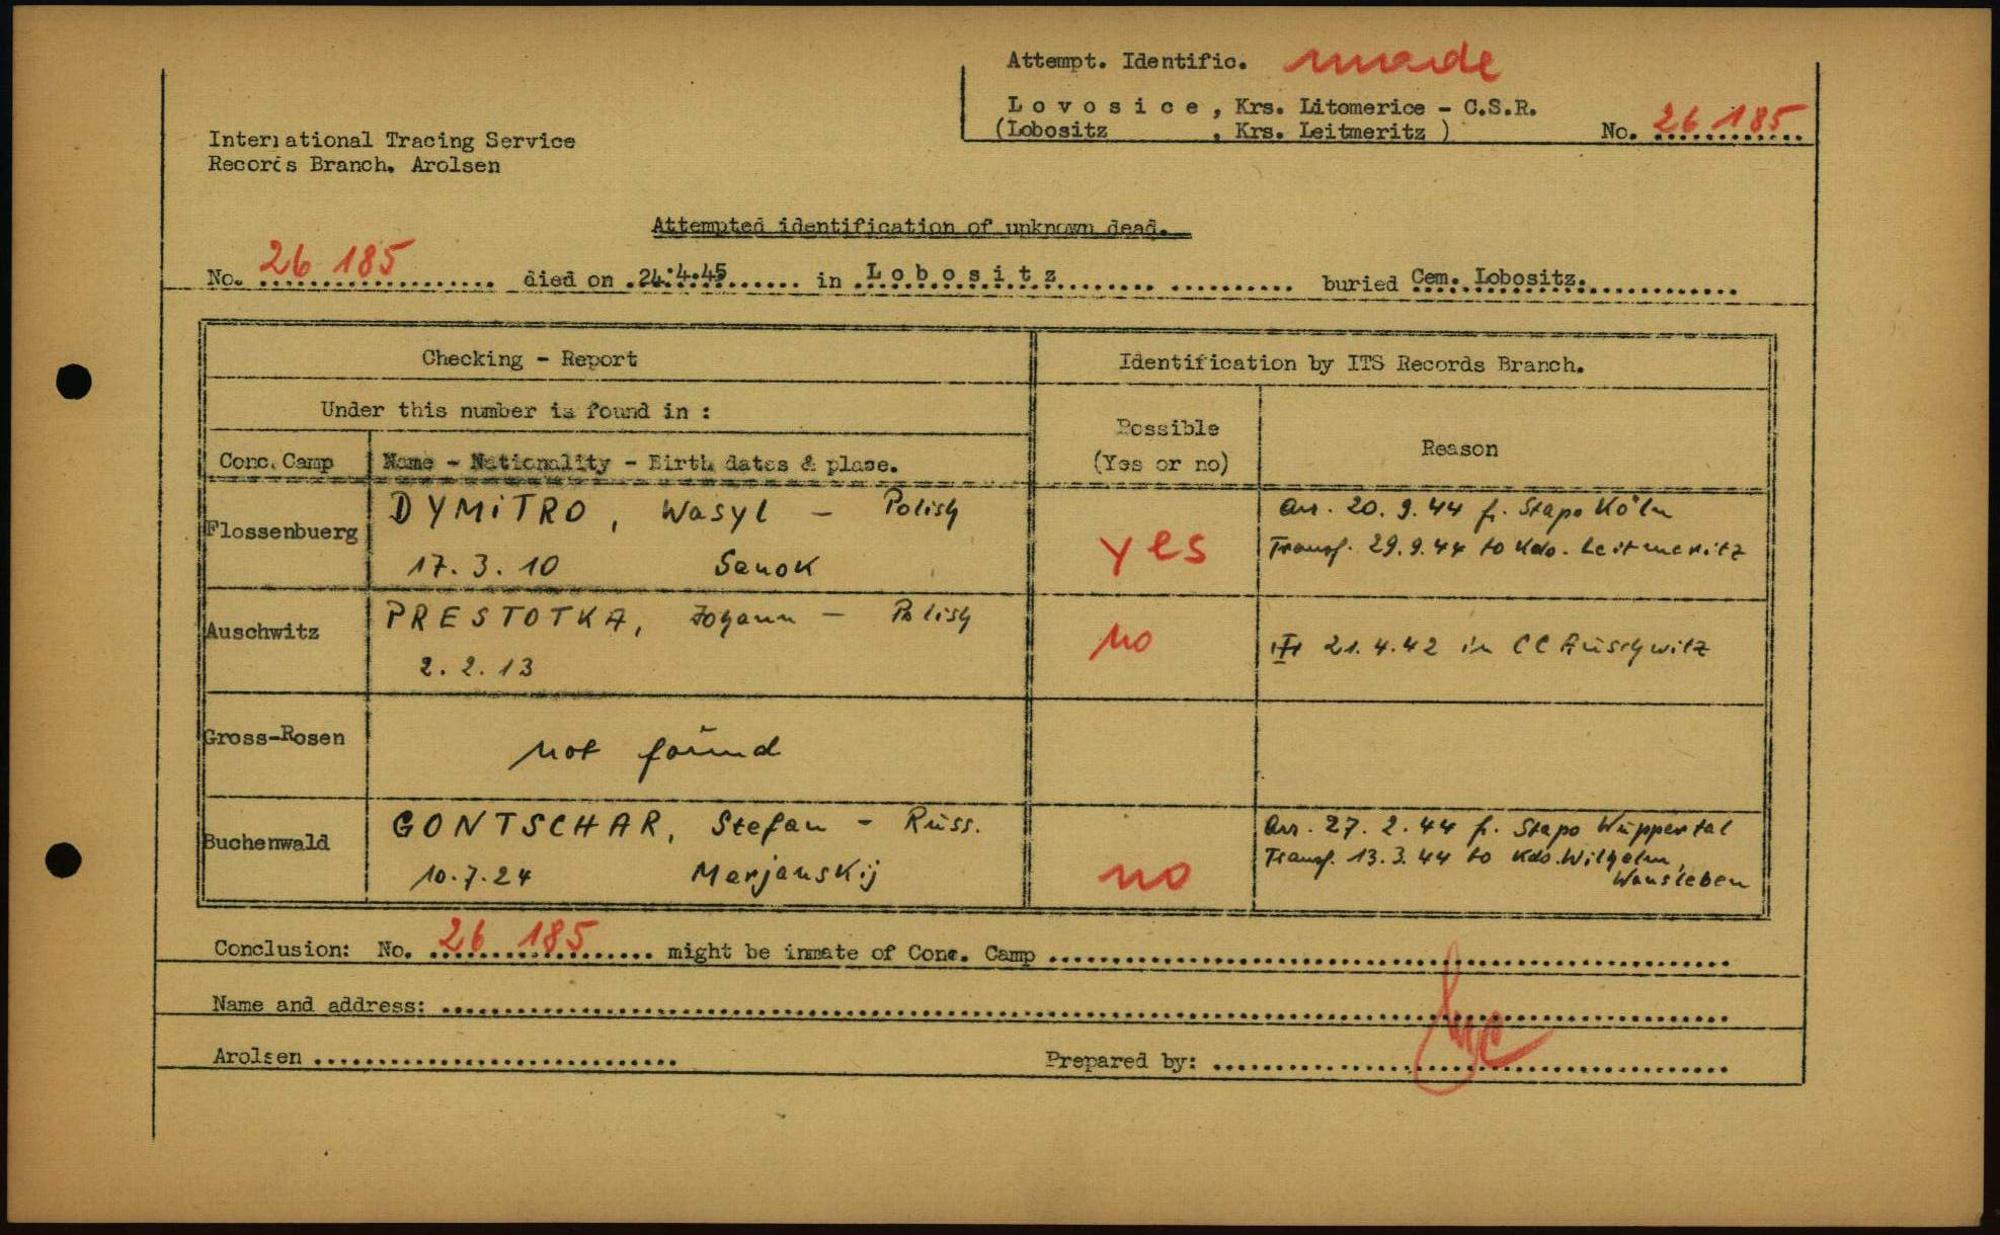 Attempt. Identific. made
Lovosice, Krs. Litomerice - C.S.R.
(Lobositz , Krs. Leitmeritz ) No. 26 185
International Tracing Service
Records Branch. Arolsen
Attempted identification of unknown dead.
No. 26 185 died on 24.4.45 in Lobositz buried Cem. Lobositz.
Checking - Report
Identification by ITS Records Branch.
Under this number is found in :
Possible
(Yes or no)
Reason
Conc. Camp
Name - Nationality - Birth dates & place.
Flossenbuerg
DYMITRO, Wasyl - Polish
17. 3. 10 Sanok
yes
Arr. 20. 9. 44 f. Stapo Köln
Transf. 29. 9. 44 to Kdo. Leitmeritz
Auschwitz
PRESTOTKA, Johann - Polish
2. 2. 13
no
21. 4. 42 in CC Auschwitz
Gross-Rosen
not found
Buchenwald
GONTSCHAR, Stefan - Russ.
10. 7. 24 Marjanskij
no
Arr. 27. 2. 44 f. Stapo Wuppertal
Transf. 13. 3. 44 to Kdo. Wilhelm,
Wansleben
Conclusion: No. 26 185 might be inmate of Conc. Camp
Name and address:
Arolsen
Prepared by: